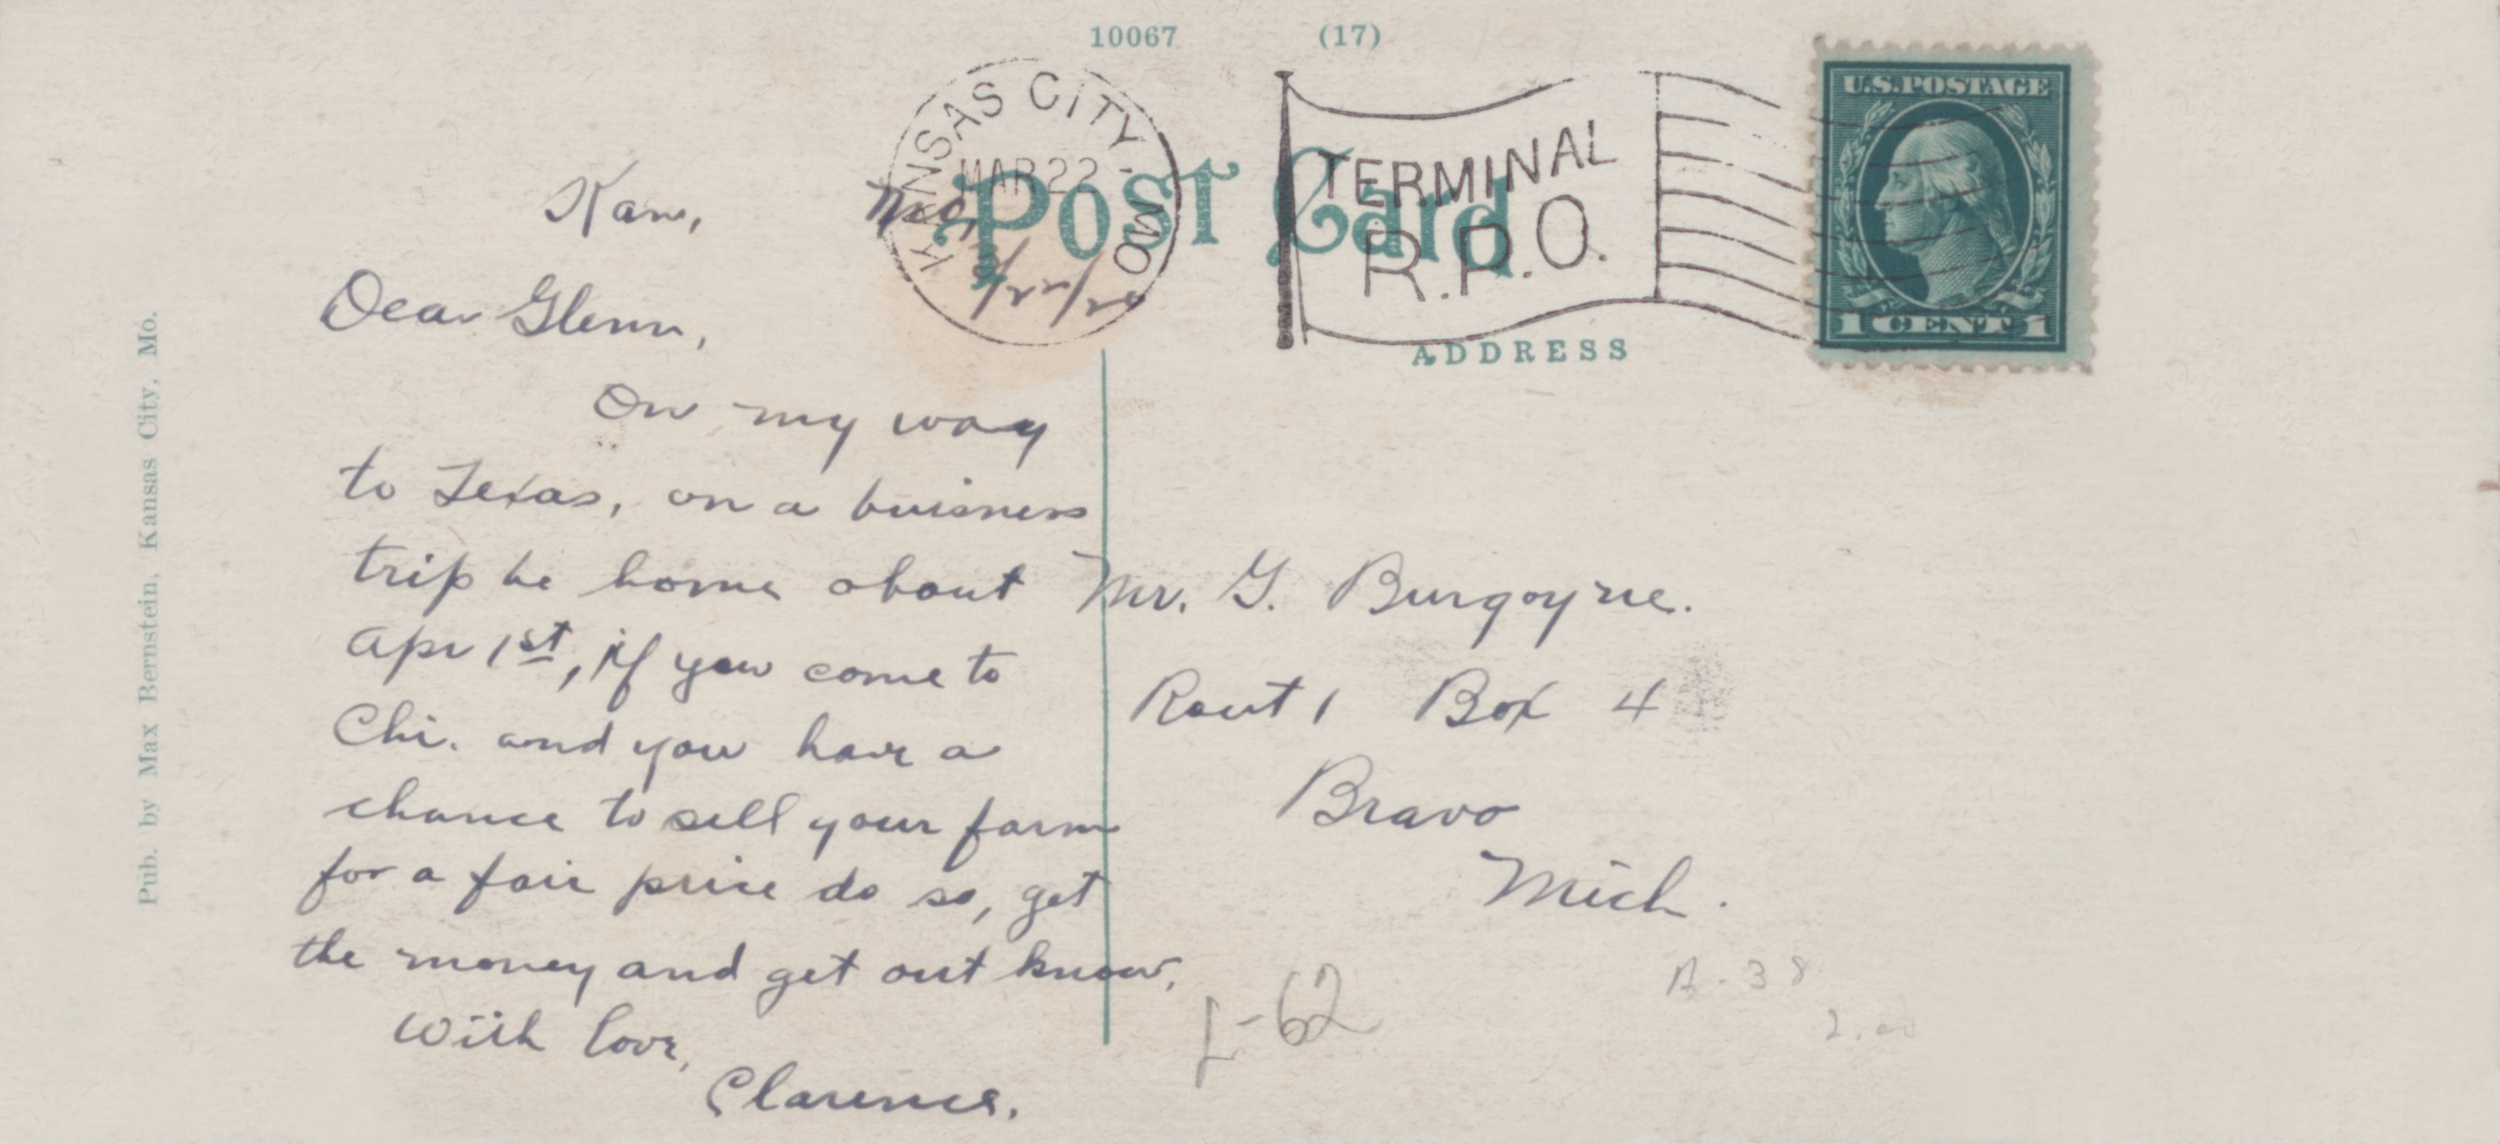 10067 (17)
KANSAS CITY, MO.
MAR 22
TERMINAL
R.P.O.
U.S.POSTAGE
1 CENT 1
POST CARD
ADDRESS
Pub. by Max Bernstein, Kansas City, Mo.
Kans, Mo,
3/22/20
Dear Glenn,
On my way
to Texas, on a buisness
trip be home about
Apr 1st, if you come to
Chi. and you have a
chance to sell your farm
for a fair price do so, get
the money and get out know,
With love,
Clarence.
Mr. G. Burgoyne.
Rout 1 Box 4
Bravo
Mich.
L-62
A-38
2.00